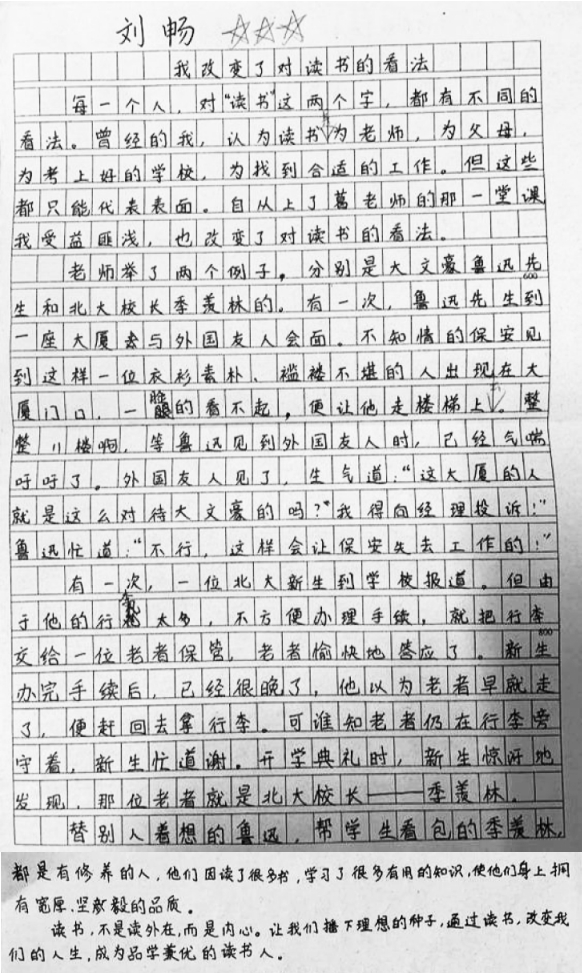 刘畅 ☆☆☆
我改变了对读书的看法
每一个人，对“读书”这两个字，都有不同的
看法。曾经的我，认为读书为老师，为父母，
为考上好的学校，为找到合适的工作。但这些
都只能代表表面。自从上了葛老师的那一堂课
我受益匪浅，也改变了对读书的看法。
老师举了两个例子，分别是大文豪鲁迅先
600
生和北大校长季羡林的。有一次，鲁迅先生到
一座大厦去与外国友人会面。不知情的保安见
到这样一位衣衫素朴、褴褛不堪的人出现在大
厦门口，一脸的看不起，便让他走楼梯上。整
整11楼啊，等鲁迅见到外国友人时，已经气喘
吁吁了。外国友人见了，生气道：“这大厦的人
就是这么对待大文豪的吗？”我得向经理投诉！”
鲁迅忙道：“不行，这样会让保安失去工作的！”
有一次，一位北大新生到学校报道。但由
于他的行李太多，不方便办理手续，就把行李
800
交给一位老者保管，老者愉快地答应了。新生
办完手续后，已经很晚了，他以为老者早就走
了，便赶回去拿行李。可谁知老者仍在行李旁
守着，新生忙道谢。开学典礼时，新生惊讶地
发现，那位老者就是北大校长——季羡林。
替别人着想的鲁迅，帮学生看包的季羡林，
都是有修养的人，他们因读了很多书，学习了很多有用的知识，使他们身上拥
有宽厚、坚毅的品质。
读书，不是读外在，而是内心。让我们播下理想的种子，通过读书，改变我
们的人生，成为品学兼优的读书人。